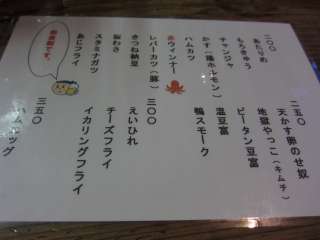 二〇〇
あたりめ
もろきゅう
チャンジャ
かす(陽ホルモン)
ハムカツ
赤ウィンナー
レバーカツ(豚)
きつね納豆
桜わさ
スタミナガツ
あじフライ
二五〇
天かす卵のせ奴
地獄やっこ(キムチ)
ピータン豆富
温豆富
鴨スモーク
三〇〇
えいひれ
チーズフライ
イカリングフライ
三五〇
ハムエッグ